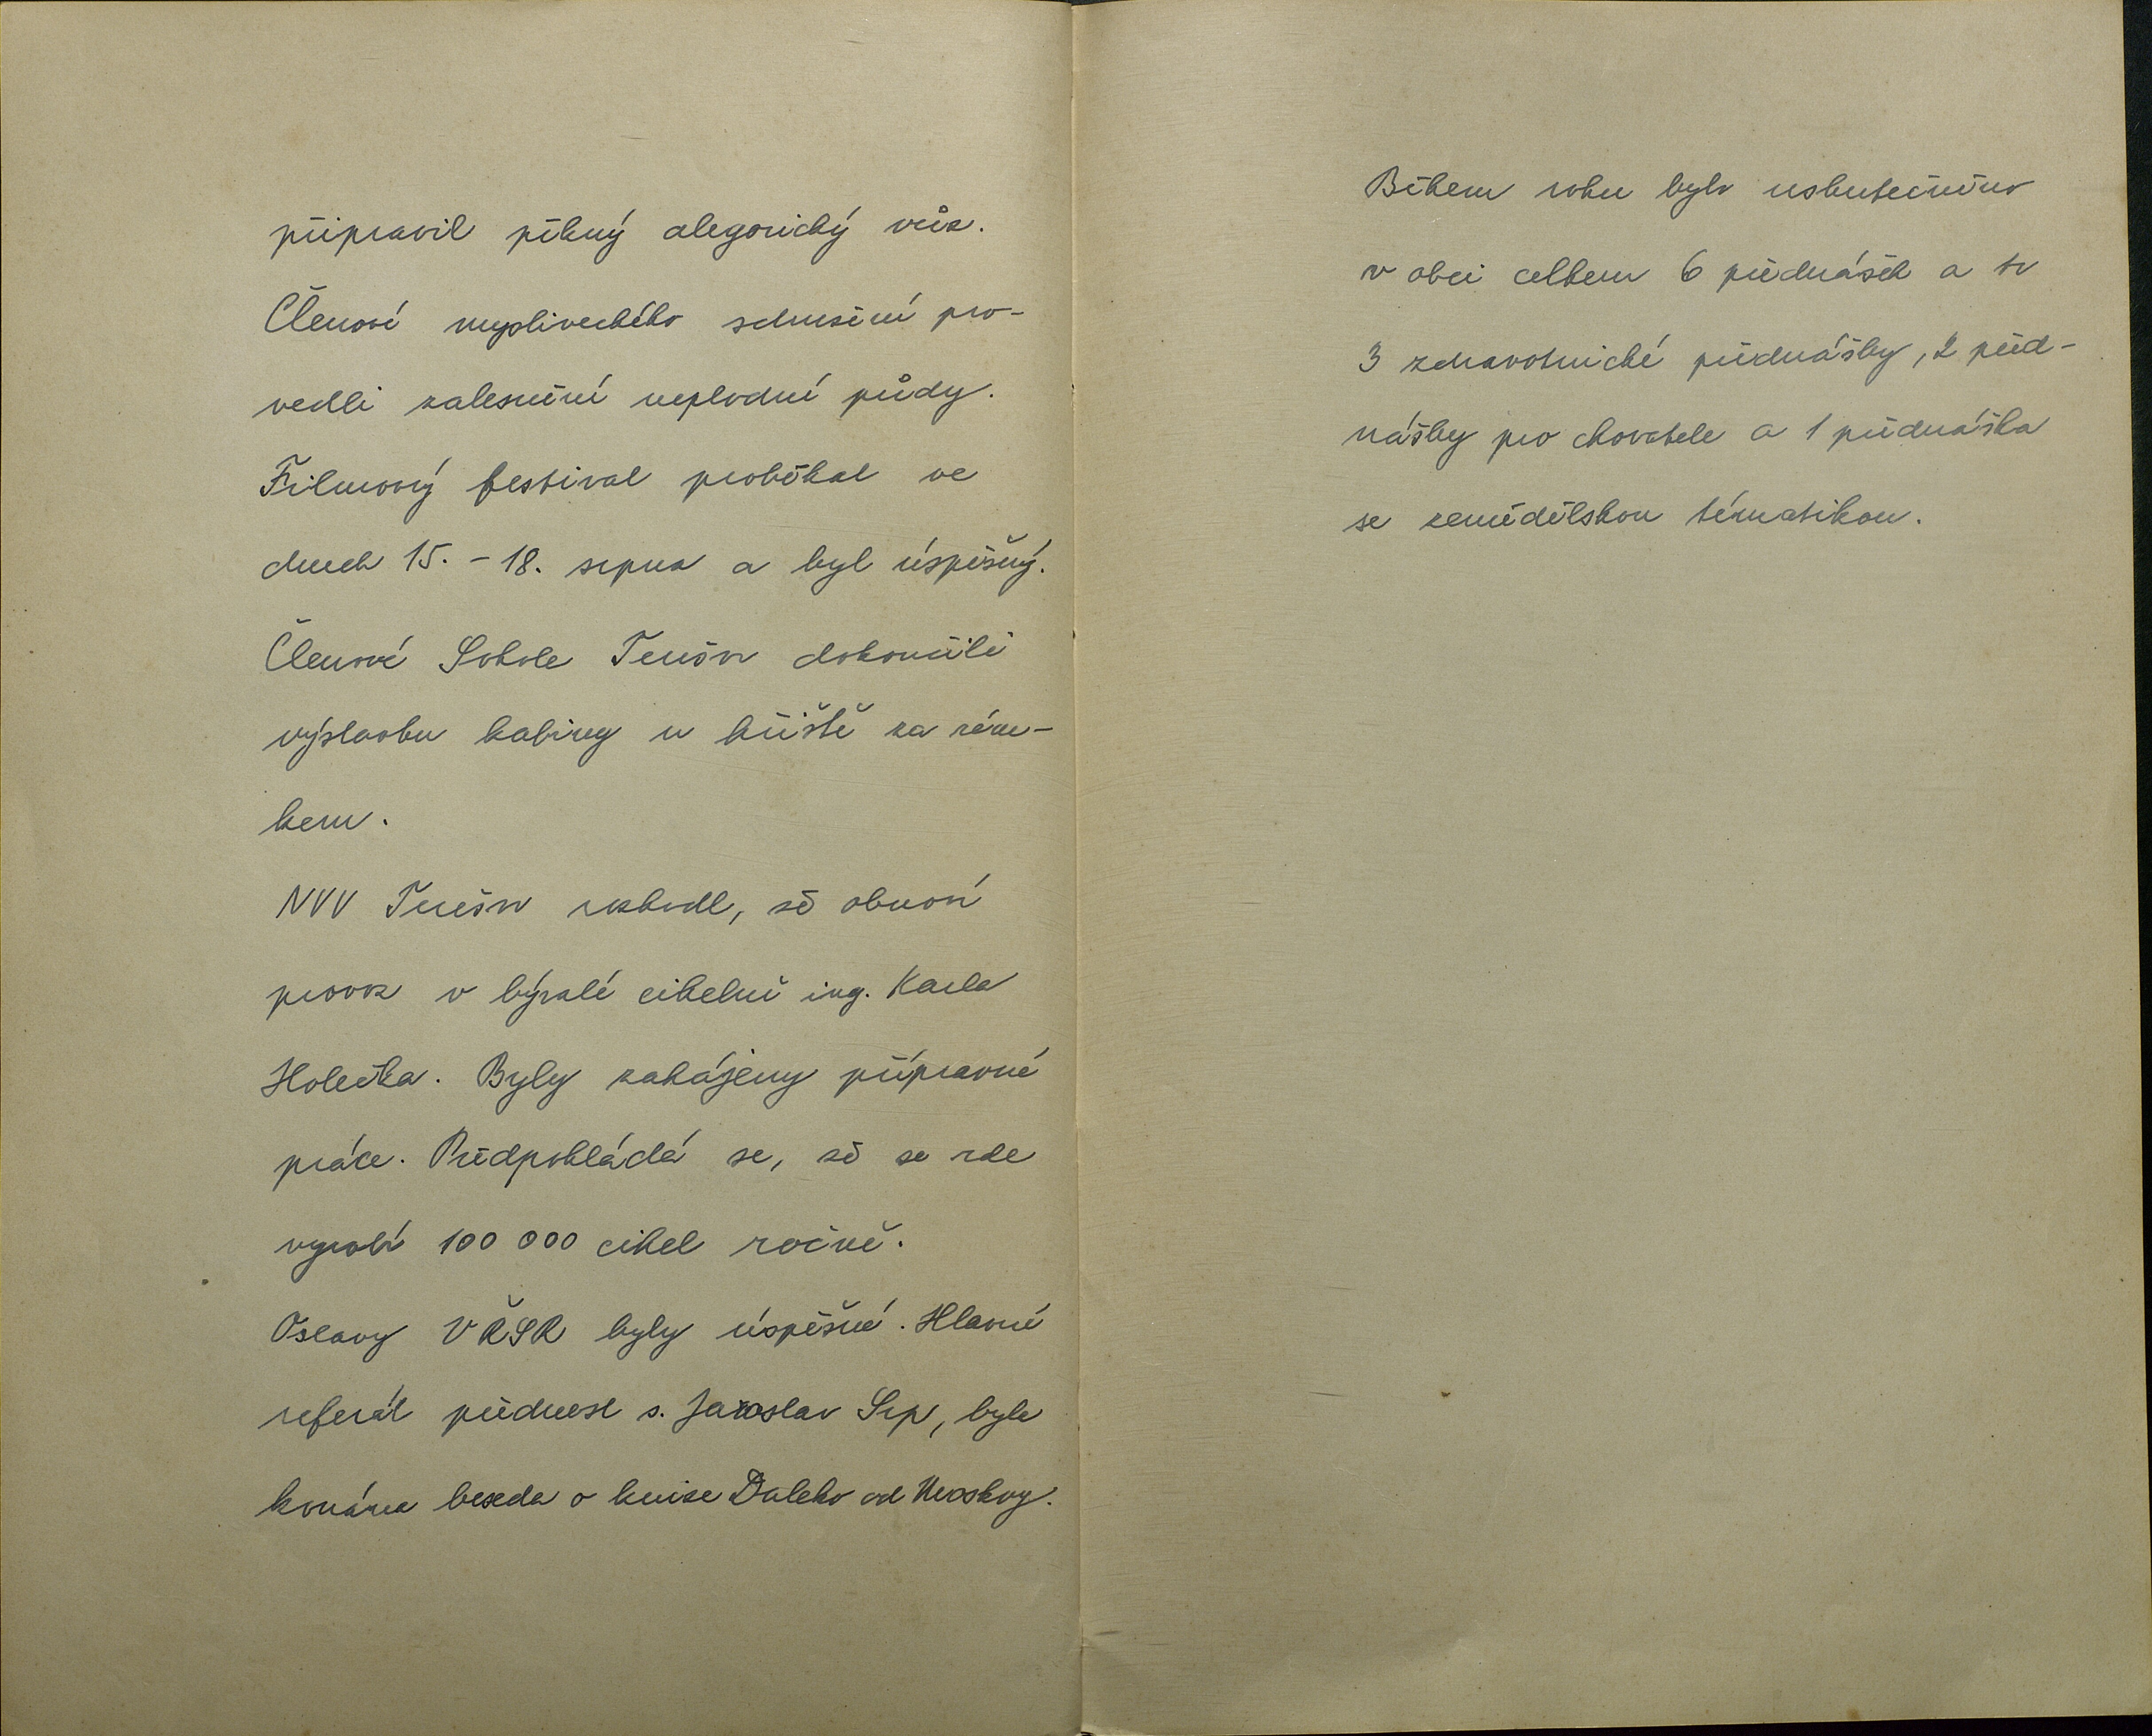 připravil pěkný alegorický vůz.
Členové mysliveckého sdružení pro-
vedli zalesnění neplodné půdy.
Filmový festival probíhal ve
dnech 15. - 18. srpna a byl úspěšný.
Členové Sokola Trnčov dokončili
výstavbu kabiny u hřiště za zám-
kem.
MNV rozhodl, že obnoví
provoz v bývalé cihelně ing. Karla
Holečka. Byly zahájeny přípravné
práce. Předpokládá se, že se zde
vyrobí 100 000 cihel ročně.
Oslavy VŘSR byly úspěšné. Hlavní
referát přednesl s. Jaroslav Srp, byla
konána beseda o knize Daleko od Moskvy.
Během roku bylo uskutečněno
v obci celkem 6 přednášek a to
3 zdravotnické přednášky, 2 před-
nášky pro chovatele a 1 přednáška
se zemědělskou tématikou.